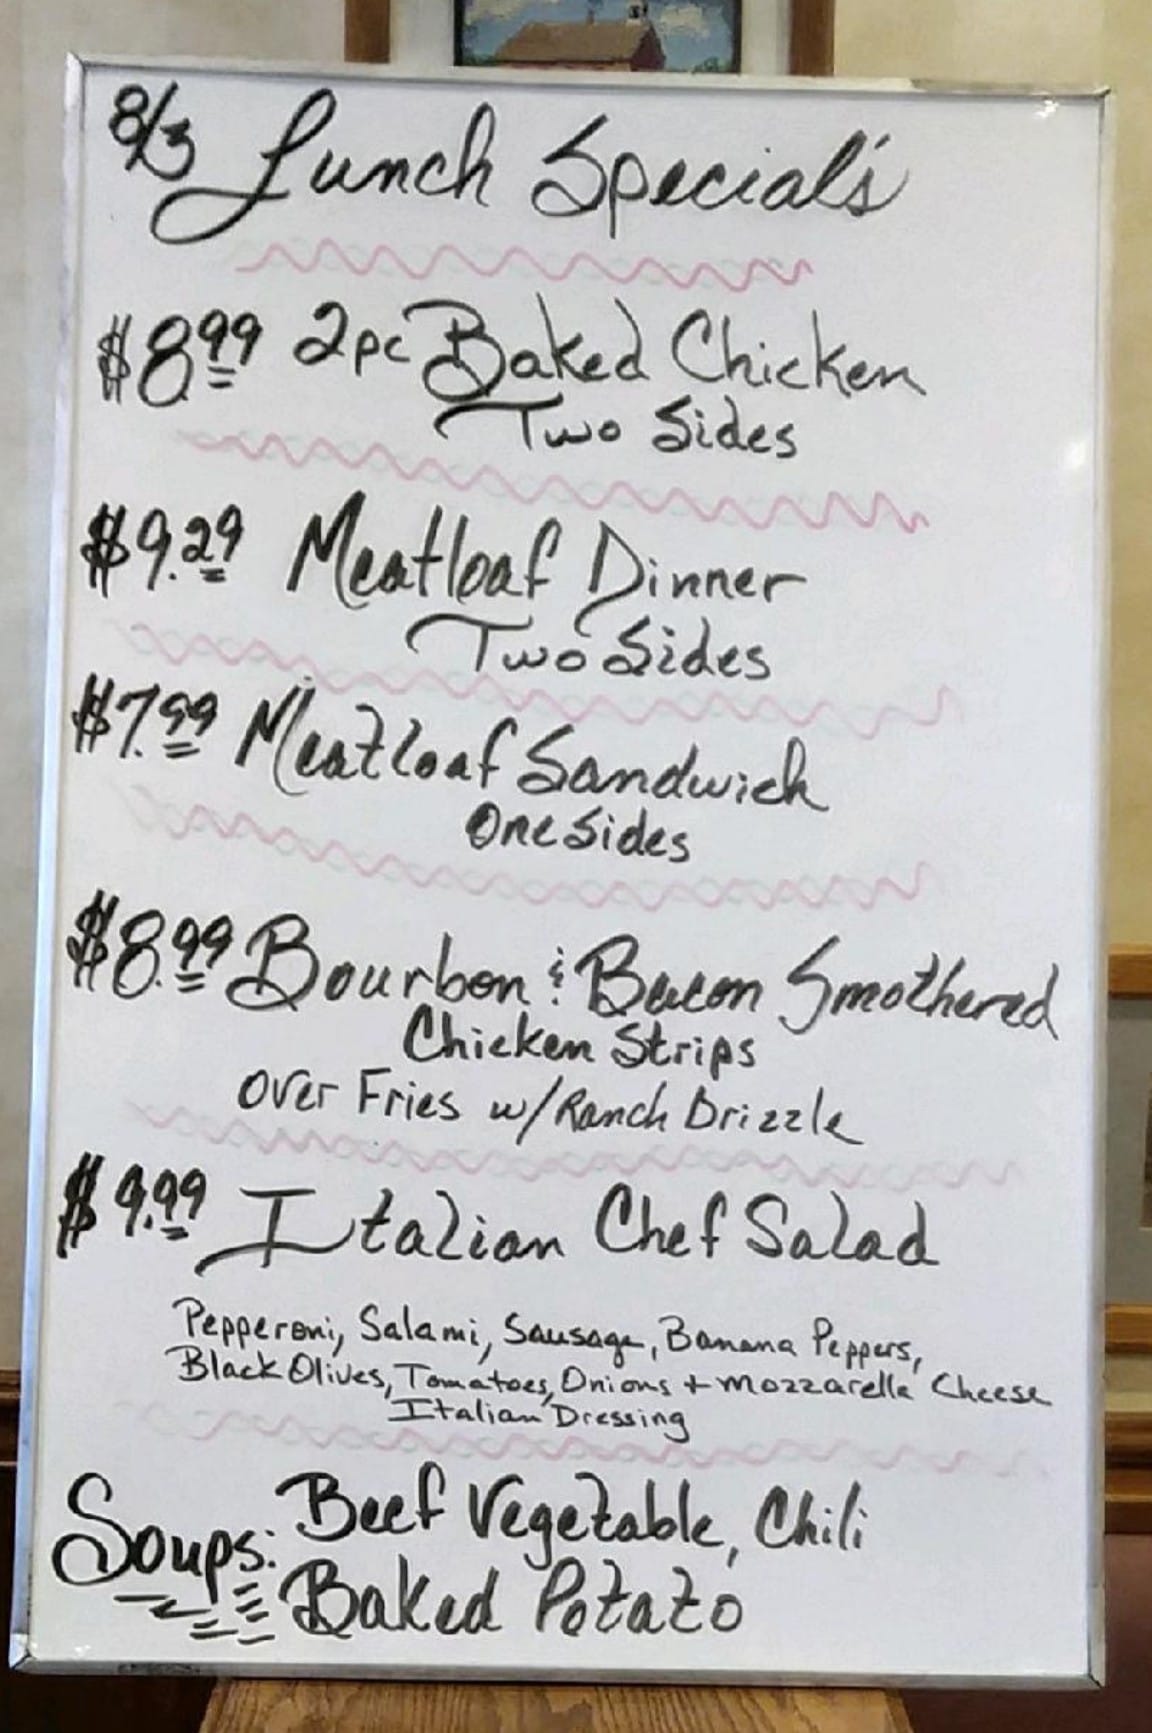 8/3 Lunch Special's
$8.99 2pc Baked Chicken
Two Sides
$9.29 Meatloaf Dinner
Two Sides
$7.99 Meatloaf Sandwich
One Sides
$8.99 Bourbon & Bacon Smothered
Chicken Strips
Over Fries w/Ranch Drizzle
$9.99 Italian Chef Salad
Pepperoni, Salami, Sausage, Banana Peppers,
Black Olives, Tomatoes, Onions + Mozzarella Cheese
Italian Dressing
Soups: Beef Vegetable, Chili
Baked Potato